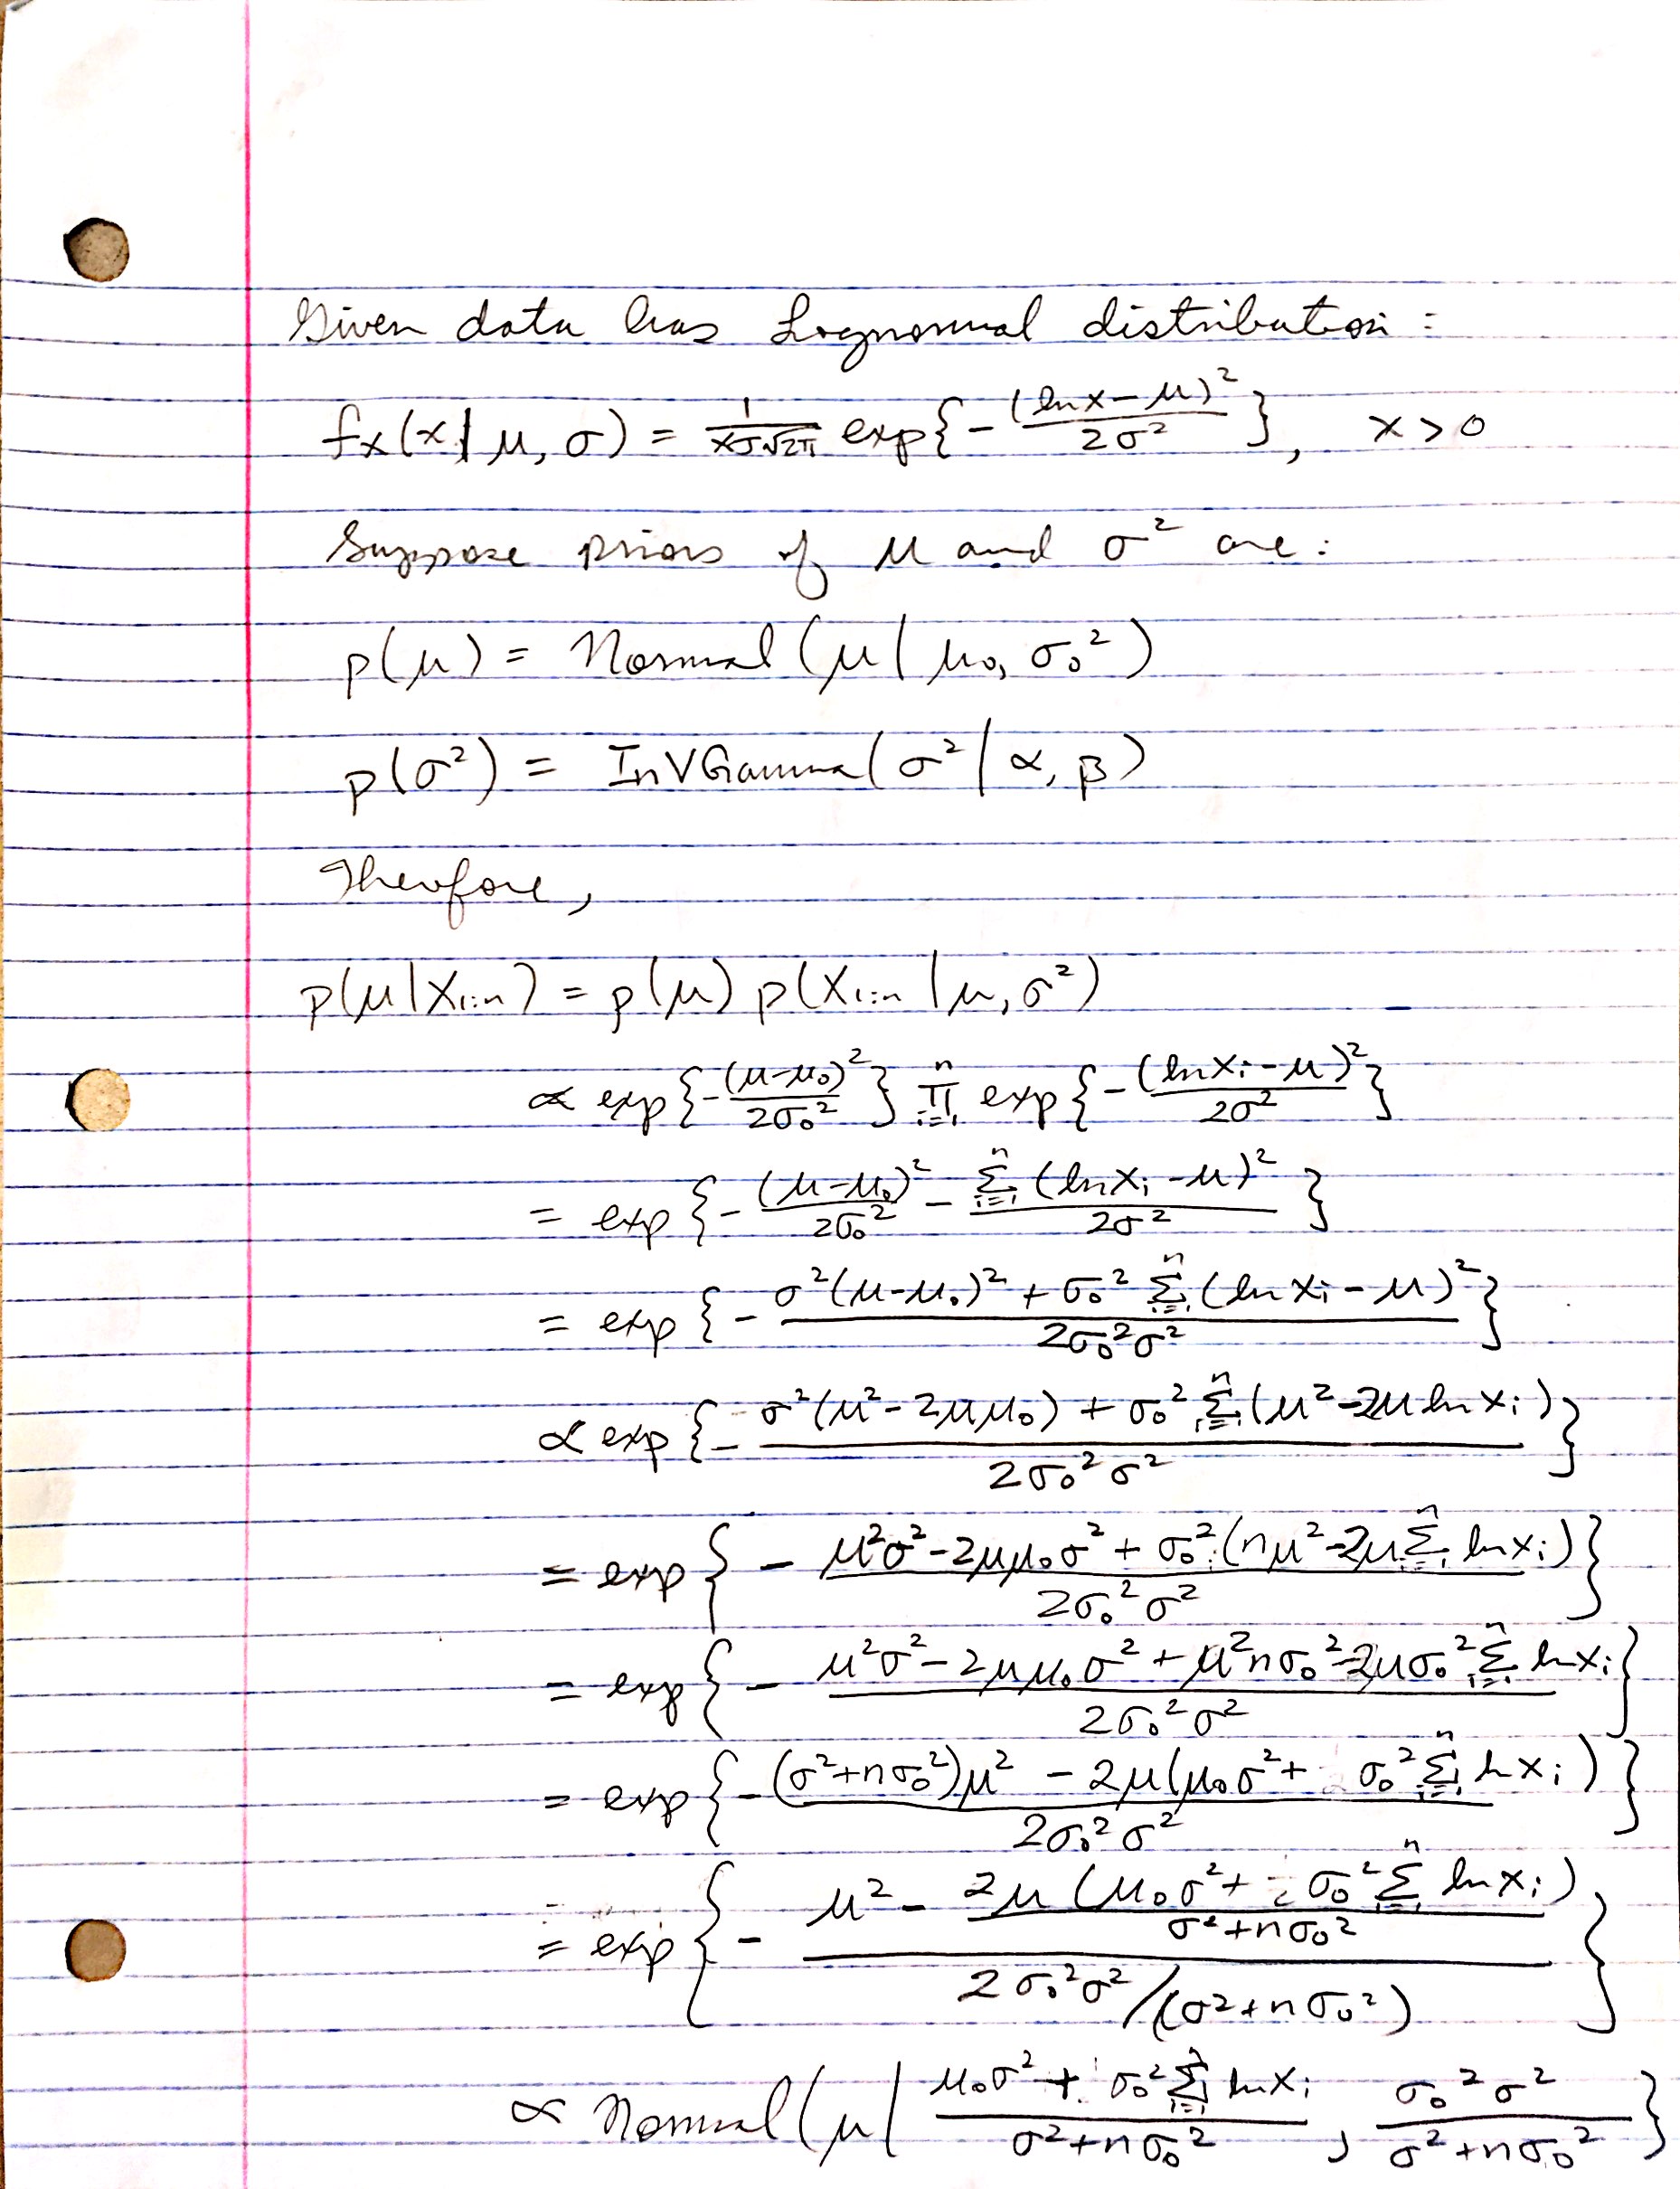 Given data has Lognormal distribution:
fx(x| μ, σ) = 1/(xσ√2π) exp{-(lnx-μ)²/2σ²}, x>0
Suppose priors of μ and σ² are:
p(μ) = Normal(μ| μ₀, σ₀²)
p(σ²) = InVGamma(σ²| α, β)
Therefore,
p(μ|X₁:ₙ) = p(μ) p(X₁:ₙ|μ, σ²)
∝ exp{-(μ-μ₀)²/2σ₀²} ∏ᵢ₌₁ⁿ exp{-(lnxᵢ-μ)²/2σ²}
= exp{-(μ-μ₀)²/2σ₀² - Σᵢ₌₁ⁿ(lnxᵢ-μ)²/2σ²}
= exp{-(σ²(μ-μ₀)² + σ₀² Σᵢ₌₁ⁿ(lnxᵢ-μ)²)/2σ₀²σ²}
∝ exp{-(σ²(μ²-2μμ₀) + σ₀² Σᵢ₌₁ⁿ(μ²-2μlnxᵢ))/2σ₀²σ²}
= exp{-(μ²σ²-2μμ₀σ² + σ₀²(nμ²-2μΣᵢ₌₁ⁿ lnxᵢ))/2σ₀²σ²}
= exp{-(μ²σ²-2μμ₀σ² + μ²nσ₀²-2μσ₀²Σᵢ₌₁ⁿ lnxᵢ)/2σ₀²σ²}
= exp{-((σ²+nσ₀²)μ² - 2μ(μ₀σ² + σ₀²Σᵢ₌₁ⁿ lnxᵢ))/2σ₀²σ²}
= exp{-(μ² - 2μ(μ₀σ² + σ₀²Σᵢ₌₁ⁿ lnxᵢ)/(σ²+nσ₀²))/(2σ₀²σ²/(σ²+nσ₀²))}
∝ Normal(μ| (μ₀σ² + σ₀²Σᵢ₌₁ⁿ lnxᵢ)/(σ²+nσ₀²), σ₀²σ²/(σ²+nσ₀²)}